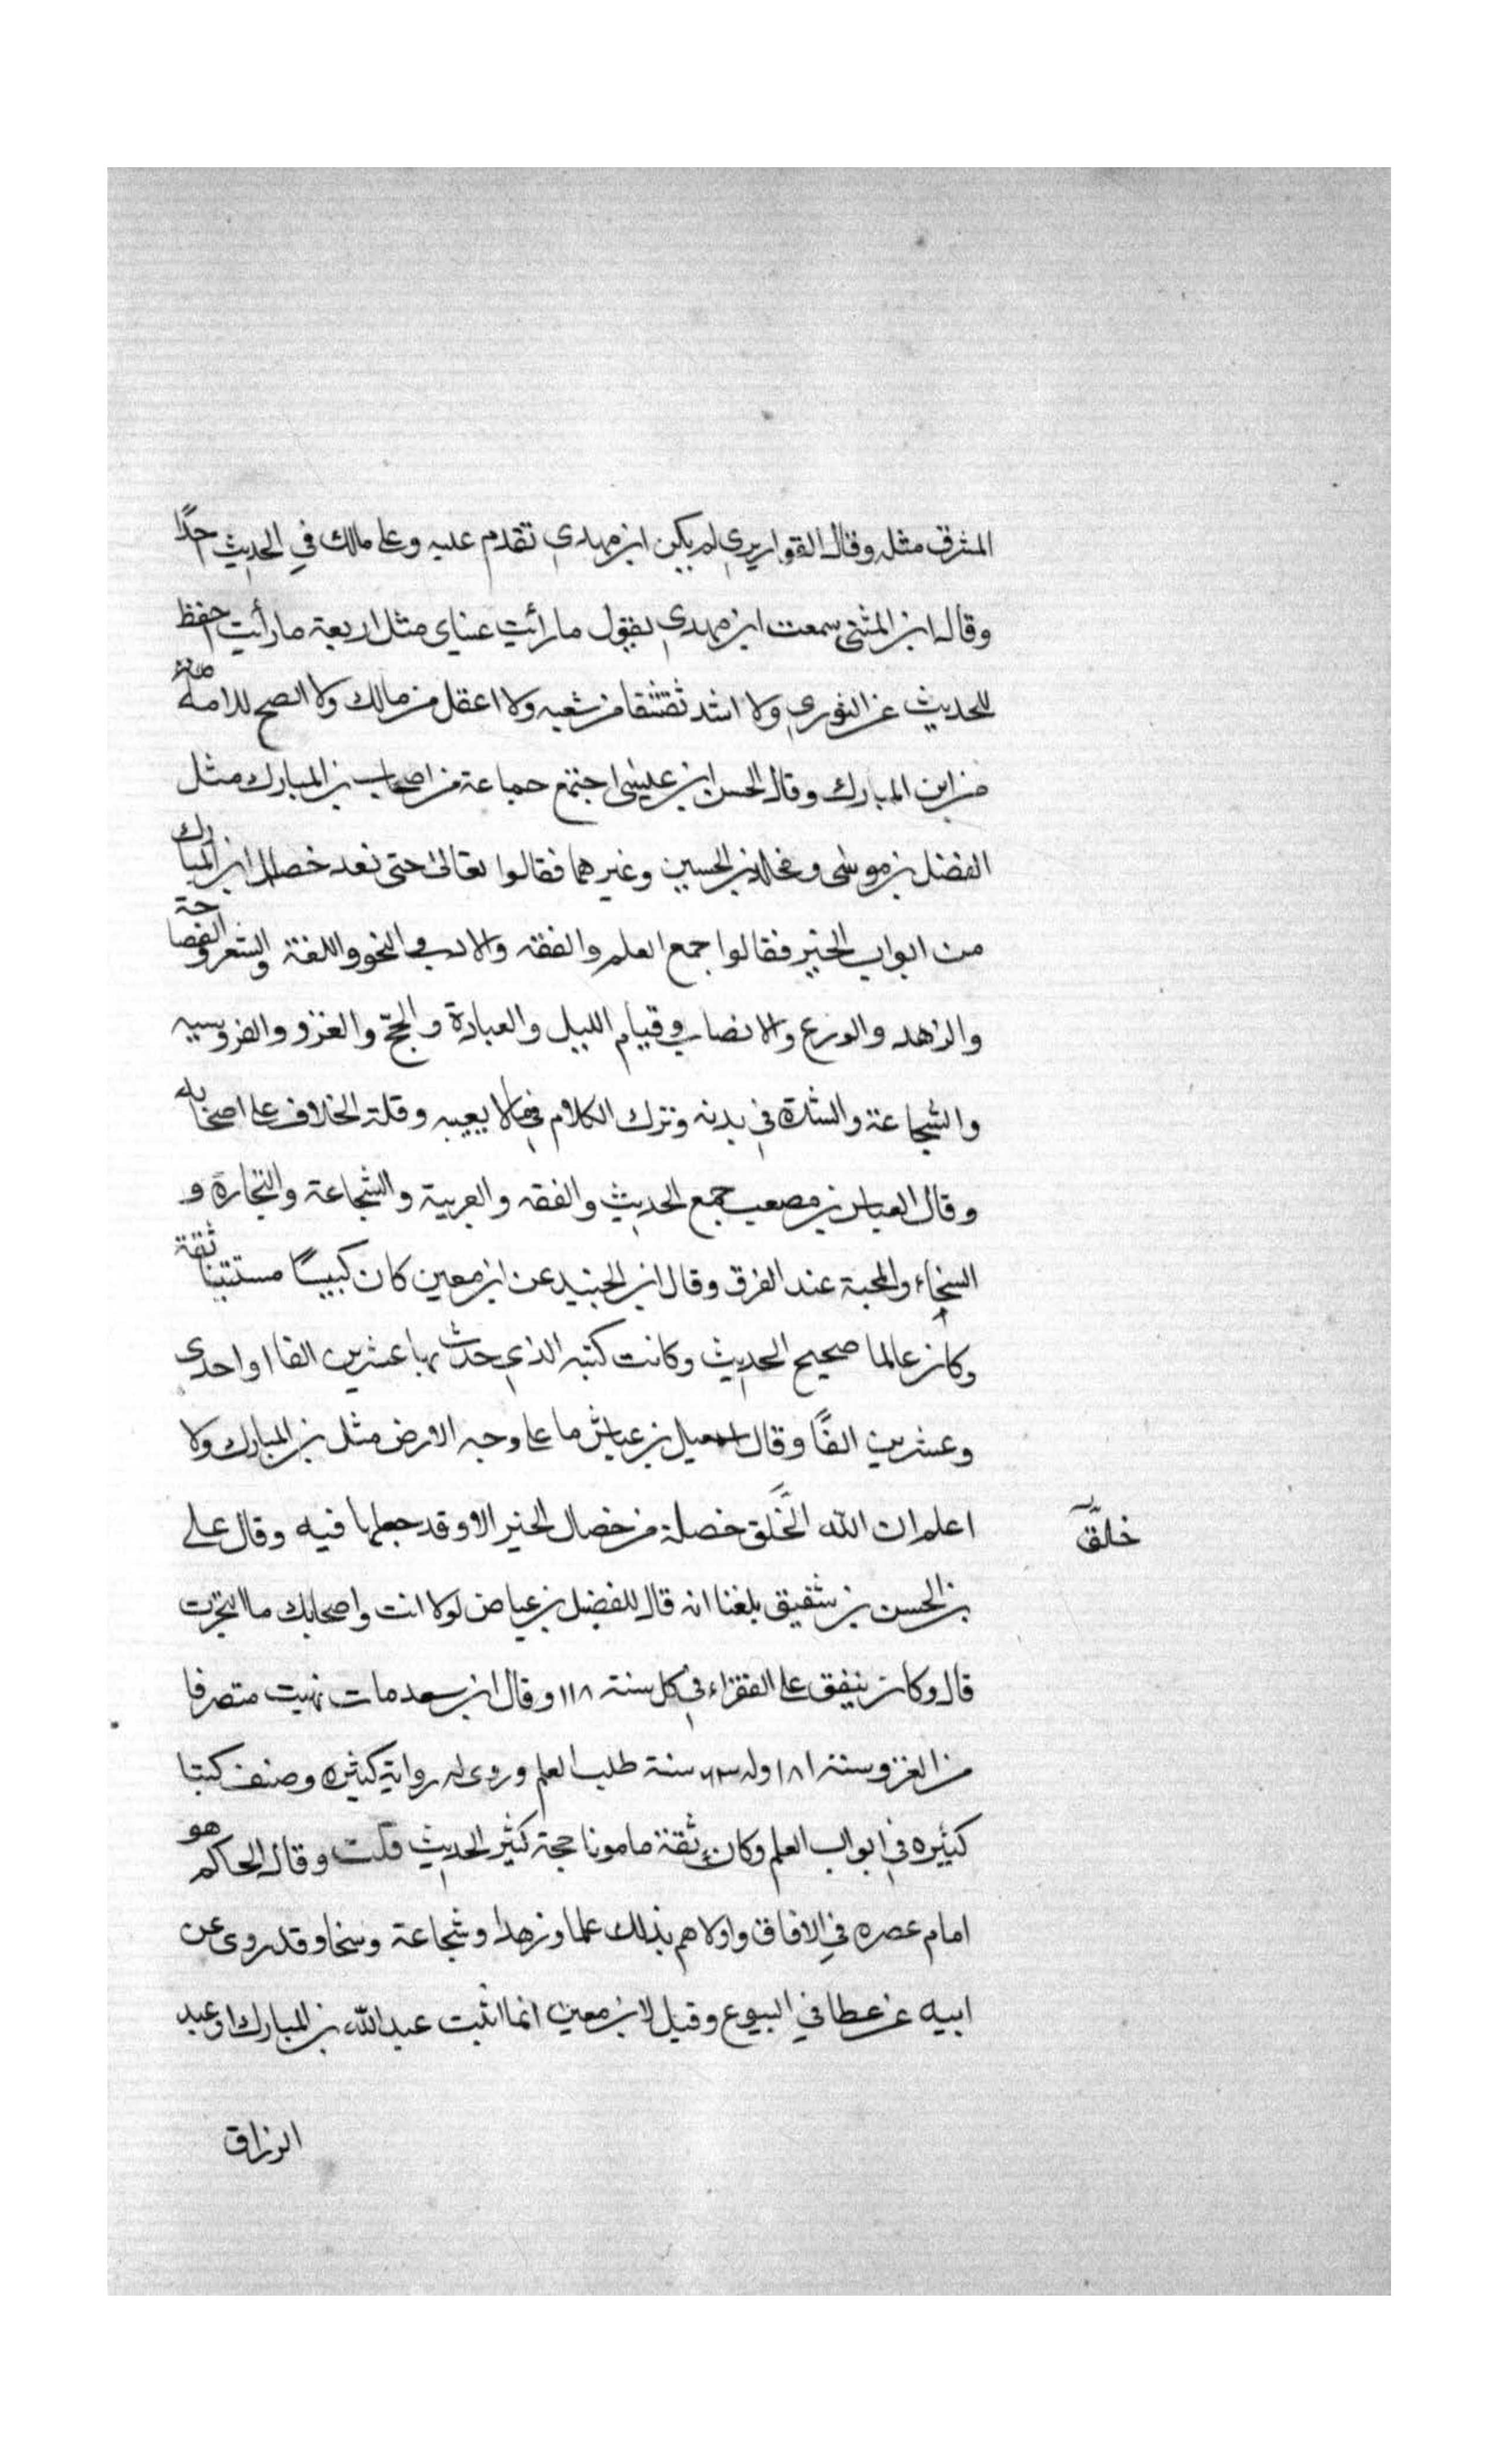 المشرق مثله وقال القواريري لم يكن ابن مهدي تقدم عليه وعلى مالك في الحديث احدًا
وقال ابن المثنى سمعت ابن مهدي يقول ما رأيت عيناي مثل اربعة ما رأيت احفظ
للحديث عن الثوري ولا اشد تقشفا من شعبه ولا اعقل من مالك ولا انصح للامة
من ابن المبارك وقال الحسن ابن عيسى اجتمع جماعة من اصحاب بن المبارك مثل
الفضل بن موسى ومخلد بن الحسين وغيرهما فقالوا تعالى حتى نعد خصال ابن المبارك
من ابواب الخير فقالوا جمع العلم والفقه والادب والنحو واللغة والشعر والفصاحة
والزهد والورع والانصاف وقيام الليل والعبادة والحج والغزو والفروسيه
والشجاعة والشدة في بدنه وترك الكلام فيما لا يعيبه وقلة الخلاف على اصحابه
وقال العباس بن مصعب جمع الحديث والفقه والعربية والشجاعة والتجارة و
السخاء والمحبة عند الفرق وقال ابن الجنيد عن ابن معين كان كيسًا مستثبتا ثقة
وكان عالما صحيح الحديث وكانت كتبه الذي حدث بها عشرين الفا او احدى
وعشرين الفًا وقال اسمعيل بن عياش ما على وجه الارض مثل بن المبارك ولا
اعلم ان الله الخَلق خصلة من خصال الخير الا وقد جعلها فيه وقال علي
خلق
بن الحسن بن شقيق بلغنا انه قال للفضيل بن عياض لولا انت واصحابك ما اتجرت
قال وكان ينفق على الفقراء في كل سنة ١١٨ وقال ابن سعد مات بهيت متصرفا
من الغزو سنة ١٨١ وله ٦٣ سنة طلب العلم وروى له رواية كثيره وصنف كتبا
كثيره في ابواب العلم وكان ثقة مامونا حجة كثير الحديث قلت وقال الحاكم هو
امام عصره في الافاق واولاهم بذلك علما وزهدا وشجاعة وسخا وقد روى عن
ابيه عن عطا في البيوع وقيل لابن معين انما اثبت عبد الله بن المبارك او عبد
الرزاق